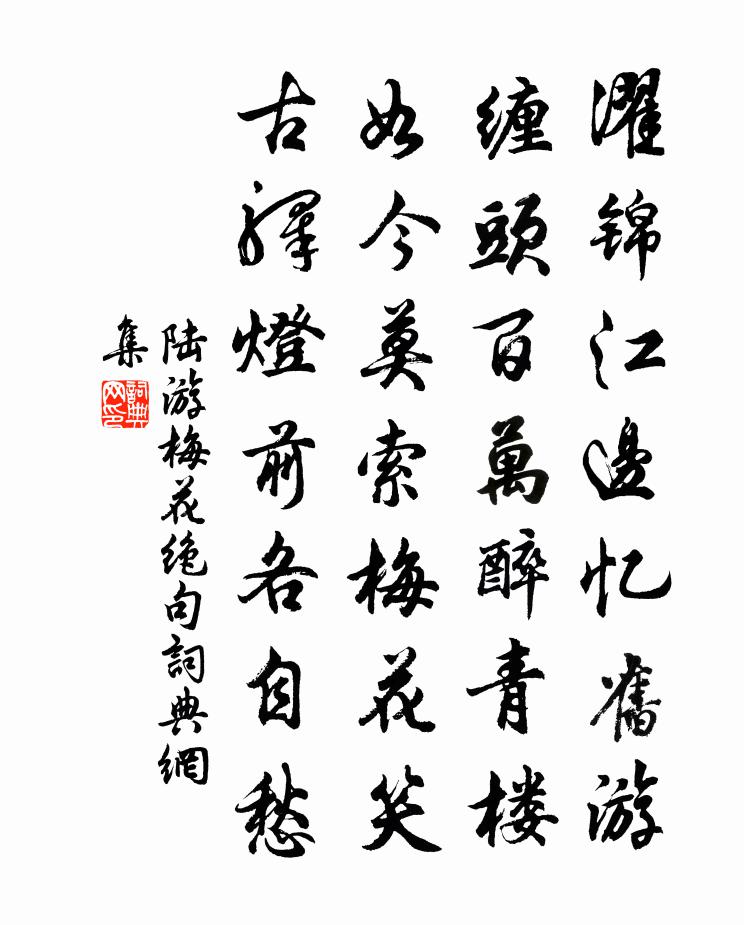 濯锦江邊忆舊游
缠頭百萬醉青楼
如今莫索梅花笑
古驿燈前各自愁
陆游梅花绝句詞典網
集
詞典
网印